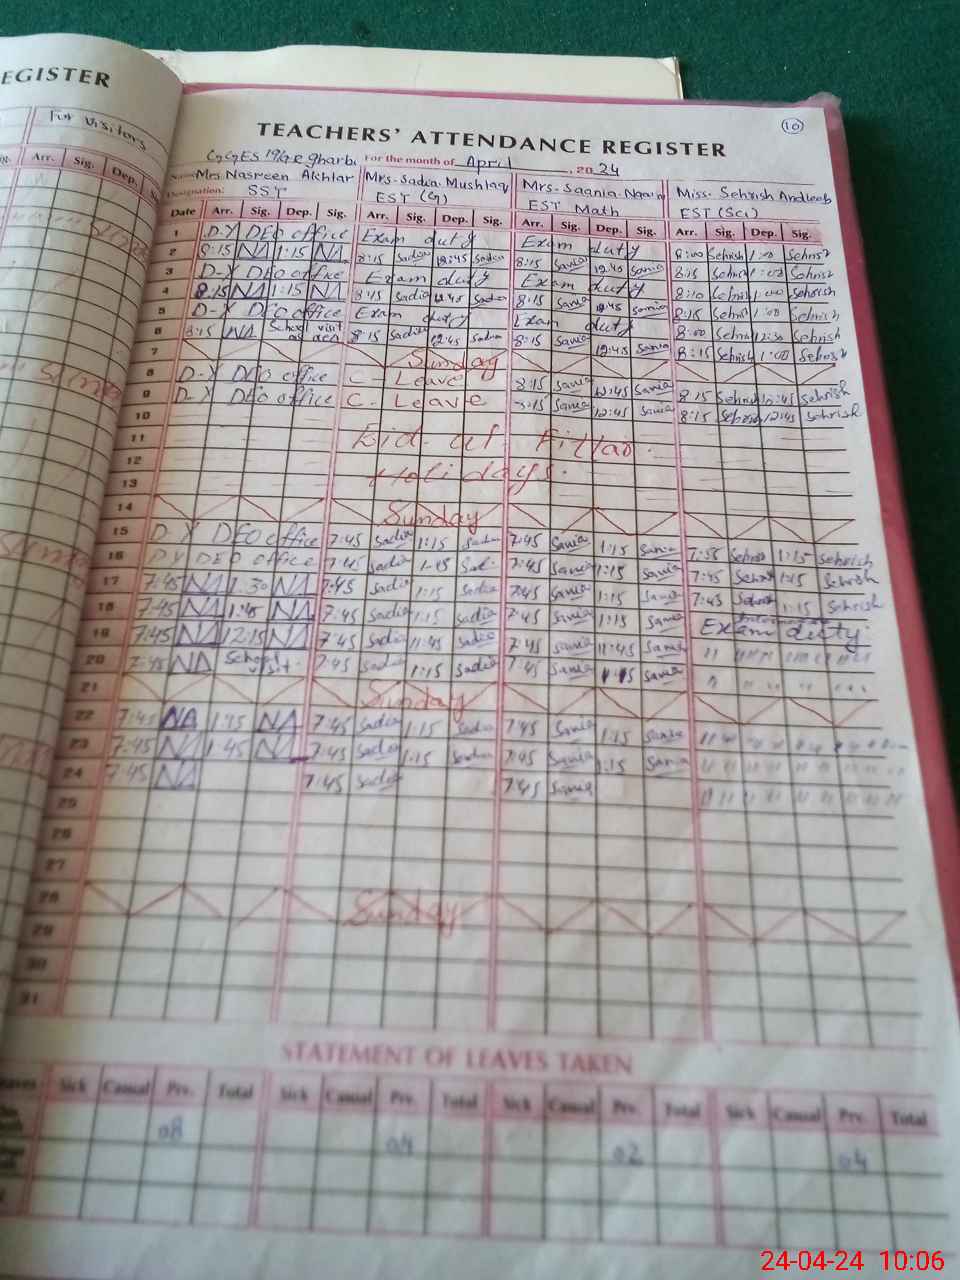 EGISTER
For Visitors
Arr. Sig. Dep.
10
TEACHERS' ATTENDANCE REGISTER
GGES 19/G.R gharbi For the month of April, 2024
Name Mrs. Nasreen Akhtar Mrs. Sadia Mushtaq Mrs. Saania Miss. Sehrish Andleeb
Designation: SST EST (G) EST Math EST (Sci)
Date Arr. Sig. Dep. Sig. Arr. Sig. Dep. Sig. Arr. Sig. Dep. Sig. Arr. Sig. Dep. Sig.
1 D-Y DEO office Exam duty Exam duty 8:00 Sehrish 1:00 Sehrish
2 8:15 NA 1:15 NA 8:15 Sadia 12:45 Sadia 8:15 Sania 12:45 Sania 8:15 Sehrish 1:00 Sehrish
3 D-Y DEO office Exam duty Exam duty 8:10 Sehrish 1:00 Sehrish
4 8:15 NA 1:15 NA 8:15 Sadia 12:45 Sadia 8:15 Sania 12:45 Sania 8:15 Sehrish 1:00 Sehrish
5 D-Y DEO office Exam duty Exam duty 8:00 Sehrish 12:30 Sehrish
6 8:15 NA School visit as 8:15 Sadia 12:45 Sadia 8:15 Sania 12:45 Sania 8:15 Sehrish 1:00 Sehrish
7 Sunday
8 D-Y DEO office C- Leave 8:15 Sania 12:45 Sania 8:15 Sehrish 12:45 Sehrish
9 D-Y DEO office C- Leave 8:15 Sania 12:45 Sania 8:15 Sehrish 12:45 Sehrish
10
11 Eid-ul-Fittar
12
13 Holidays.
14 Sunday
15 D Y DEO office 7:45 Sadia 1:15 Sadia 7:45 Sania 1:15 Sania 1:15 Sehrish
16 D Y DEO office 7:45 Sadia 1:15 Sad. 7:45 Sania 1:15 Sania 7:45 Sehrish 1:15 Sehrish
17 7:45 NA 1:30 NA 7:45 Sadia 1:15 Sadia 7:45 Sania 1:15 Sania 7:45 Sehrish 1:15 Sehrish
18 7:45 NA 1:45 NA 7:45 Sadia 1:15 Sadia 7:45 Sania 1:15 Sania Exam duty
19 7:45 NA 12:15 NA 7:45 Sadia 11:45 Sadia 7:45 Sania 11:45 Sania " " " "
20 7:45 NA School 7:45 Sadia 1:15 Sadia 7:45 Sania 1:15 Sania " " " "
21 Sunday
22 7:45 NA 1:15 NA 7:45 Sadia 1:15 Sadia 7:45 Sania 1:15 Sania " " " "
23 7:45 NA 1:45 NA 7:45 Sadia 1:15 Sadia 7:45 Sania 1:15 Sania " " " "
24 7:45 NA 7:45 Sadia 7:45 Sania " " " "
25
26
27
28 Sunday
29
30
31
STATEMENT OF LEAVES TAKEN
Leaves Sick Casual Prv. Total Sick Casual Prv. Total Sick Casual Prv. Total Sick Casual Prv. Total
08 04 02 04
24-04-24 10:06